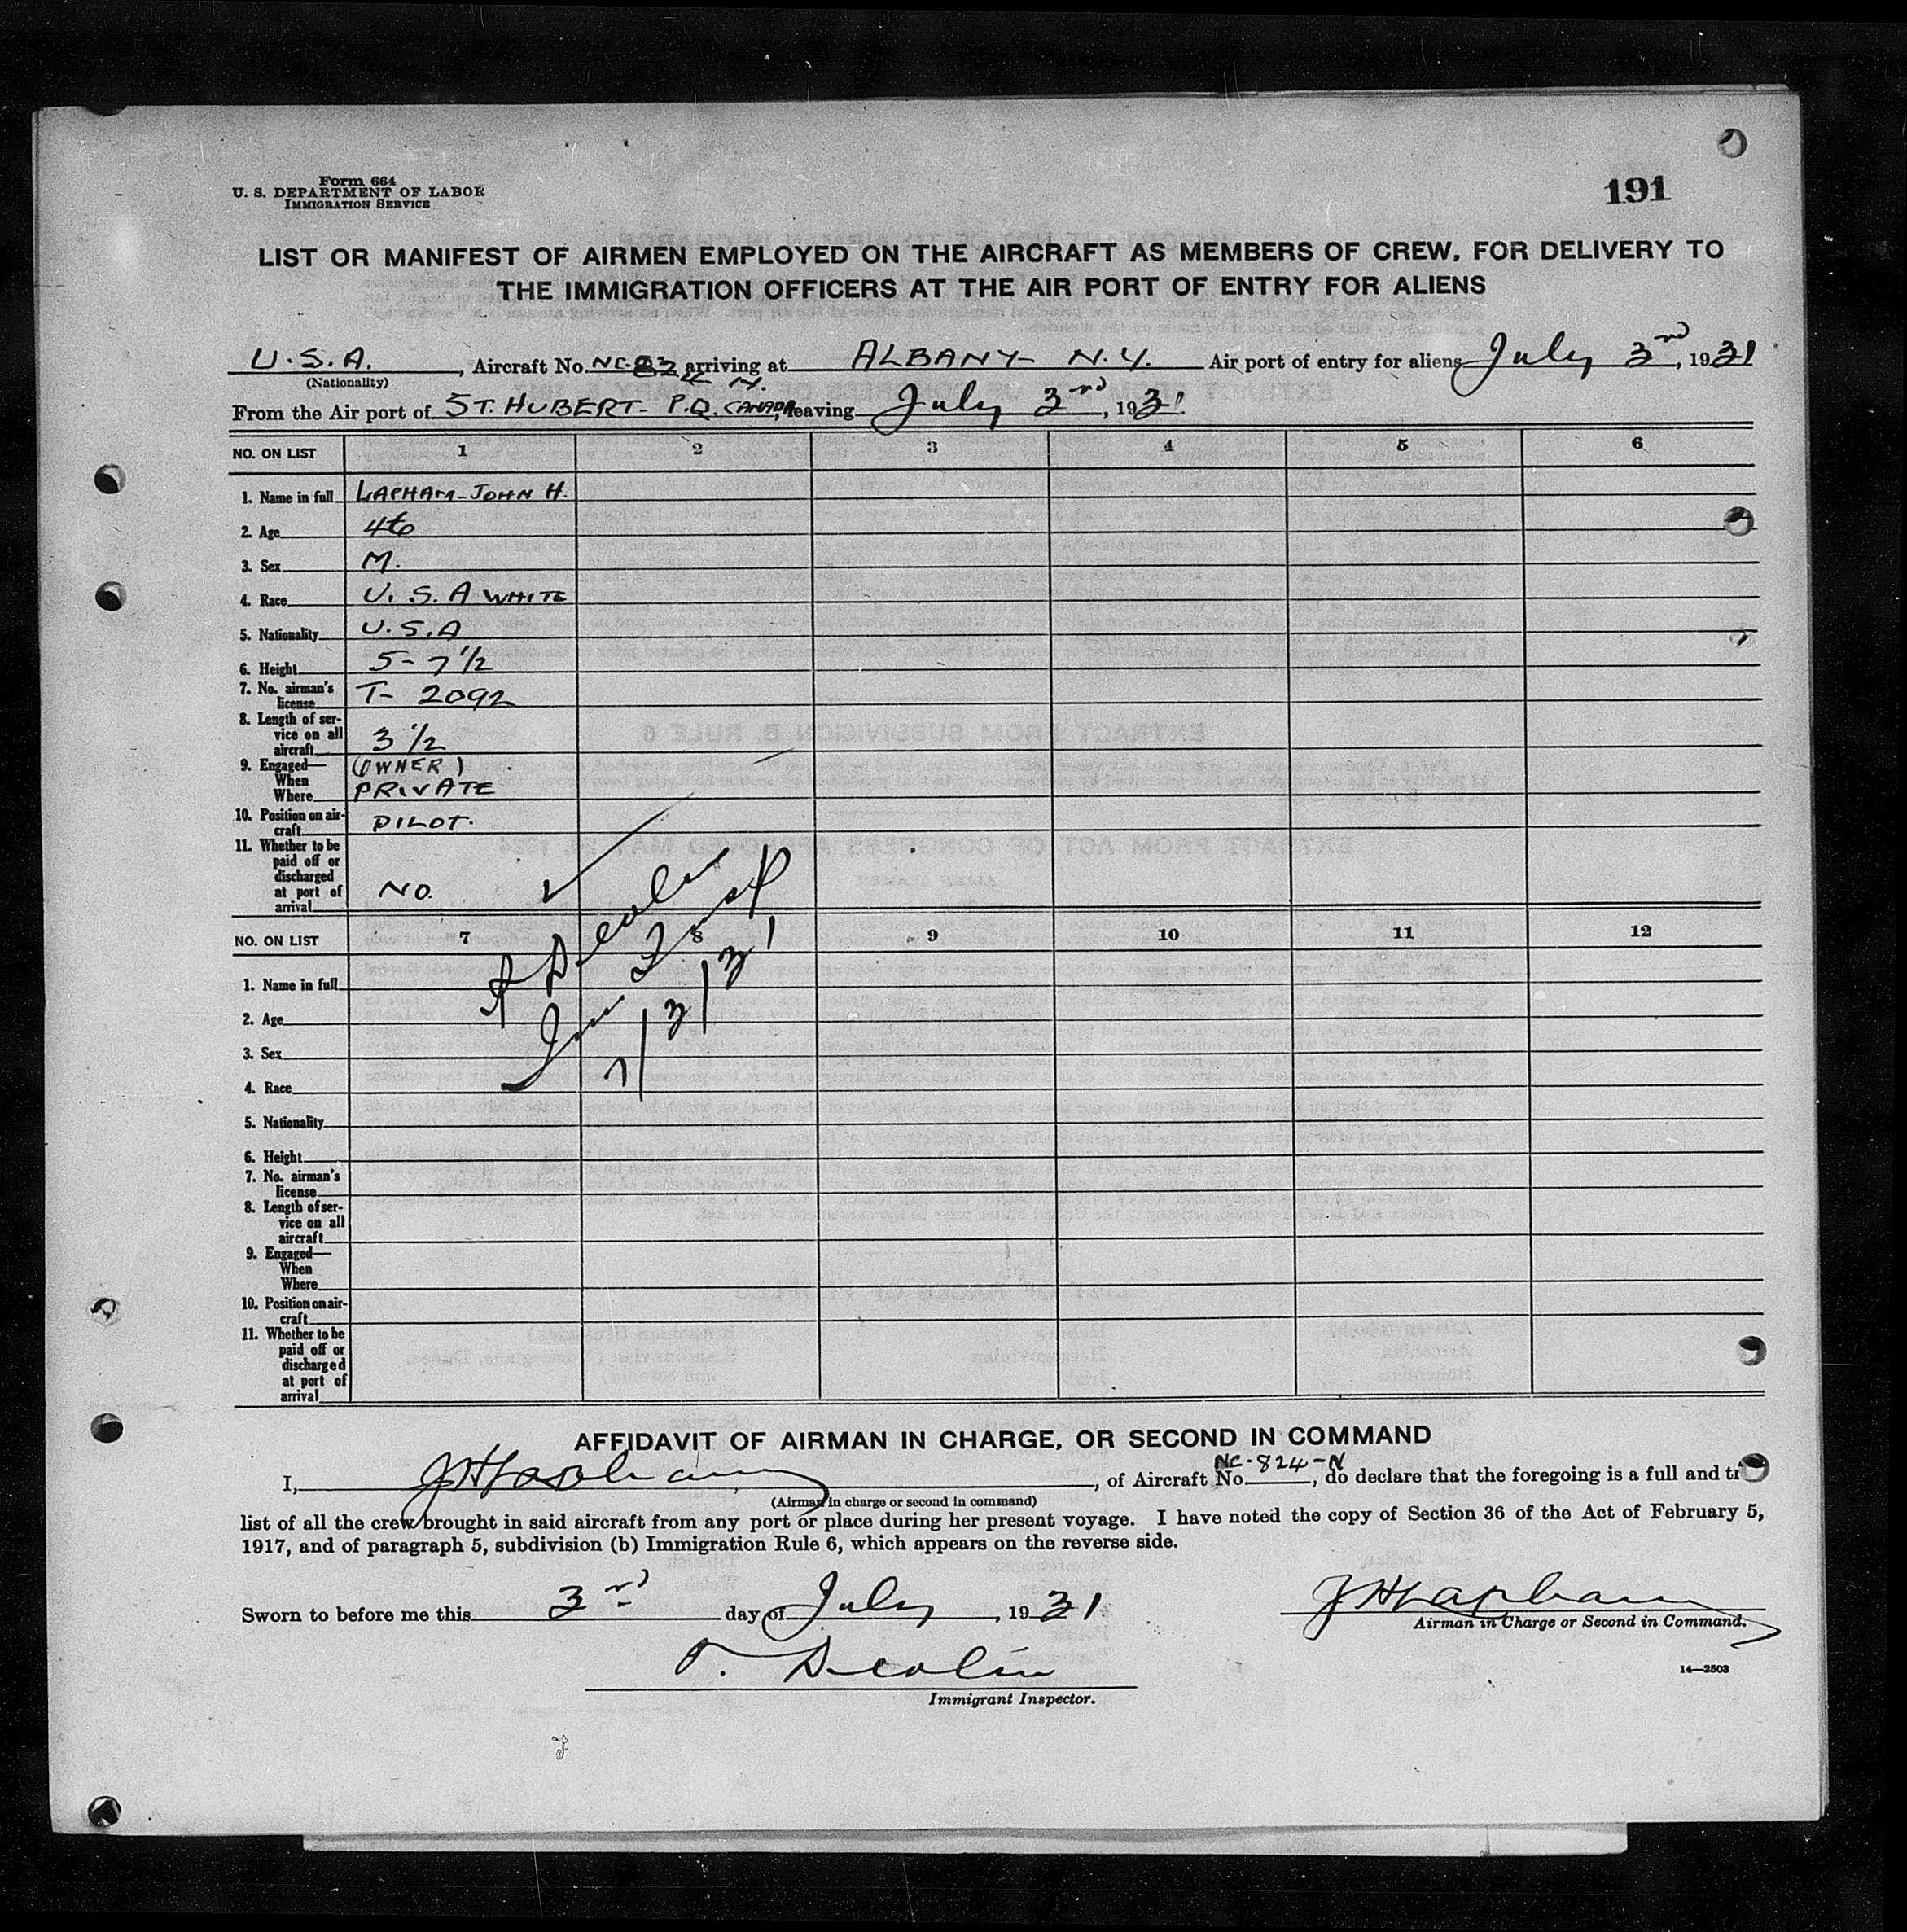 Form 664
U. S. DEPARTMENT OF LABOR
IMMIGRATION SERVICE
191
LIST OR MANIFEST OF AIRMEN EMPLOYED ON THE AIRCRAFT AS MEMBERS OF CREW, FOR DELIVERY TO
THE IMMIGRATION OFFICERS AT THE AIR PORT OF ENTRY FOR ALIENS
U.S.A., Aircraft No. NC-824 N. arriving at ALBANY- N.Y. Air port of entry for aliens July 3rd, 1931
(Nationality)
From the Air port of ST. HUBERT- P.Q. CANADA, leaving July 3rd, 1931.
NO. ON LIST 1 2 3 4 5 6
1. Name in full LAPHAM-JOHN H.
2. Age 46
3. Sex M.
4. Race U. S. A WHITE
5. Nationality U.S.A
6. Height 5-7 1/2
7. No. airman's
license T- 2092
8. Length of ser-
vice on all
aircraft 3 1/2
9. Engaged— (OWNER)
When
Where PRIVATE
10. Position on air-
craft PILOT.
11. Whether to be
paid off or
discharged
at port of
arrival NO.
Devlin
Imm Insp
7/3/31
NO. ON LIST 7 8 9 10 11 12
1. Name in full
2. Age
3. Sex
4. Race
5. Nationality
6. Height
7. No. airman's
license
8. Length of ser-
vice on all
aircraft
9. Engaged—
When
Where
10. Position on air-
craft
11. Whether to be
paid off or
discharged
at port of
arrival
AFFIDAVIT OF AIRMAN IN CHARGE, OR SECOND IN COMMAND
I, J H Lapham, of Aircraft No. NC-824-N, do declare that the foregoing is a full and tr
(Airman in charge or second in command)
list of all the crew brought in said aircraft from any port or place during her present voyage. I have noted the copy of Section 36 of the Act of February 5,
1917, and of paragraph 5, subdivision (b) Immigration Rule 6, which appears on the reverse side.
Sworn to before me this 3rd day of July, 1931
J H Lapham
Airman in Charge or Second in Command.
Devlin
14—2503
Immigrant Inspector.